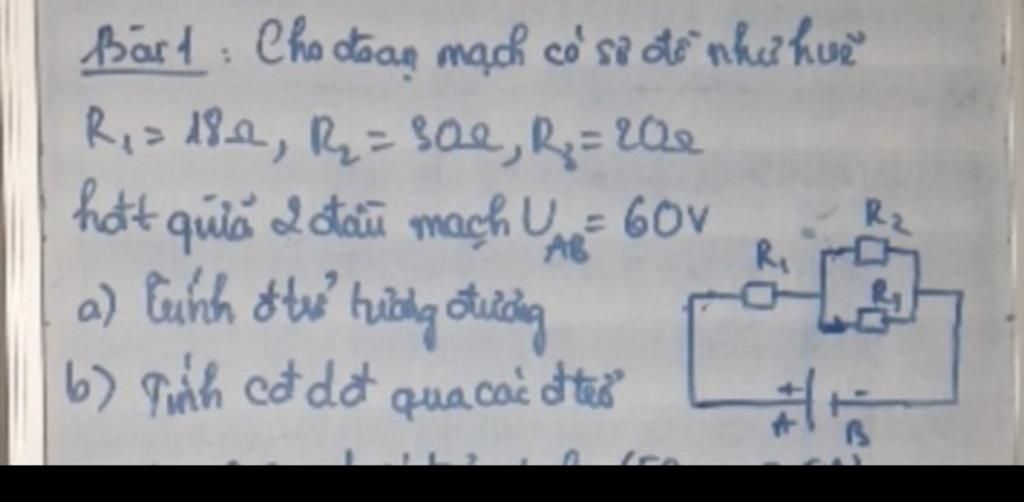 Bài 1: Cho đoạn mạch có sơ đồ như hvẽ
R₁ = 18Ω, R₂ = 30Ω, R₃ = 20Ω
hđt giữa 2 đầu mạch U_AB = 60V
a) Tính đtrở tương đương
b) Tính cđdđ qua các đtrở
R₂
R₁
R₃
+ -
A B